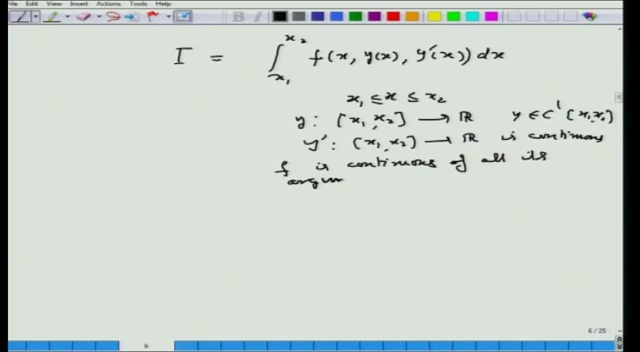 File Edit View Insert Actions Tools Help
I = ∫_{x₁}^{x₂} f(x, y(x), y'(x)) dx
x₁ ≤ x ≤ x₂
y : [x₁, x₂] → ℝ y ∈ C¹ [x₁, x₂]
y' : [x₁, x₂] → ℝ is continuous
f is continuous of all its
argum
6 / 25
6